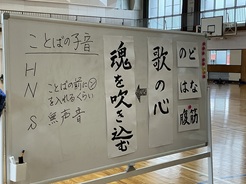 ことばの子音
H
N ことばの前に㋨
を入れるくらい
S 無声音
魂を吹き込む
歌の心
のど
はな
腹筋